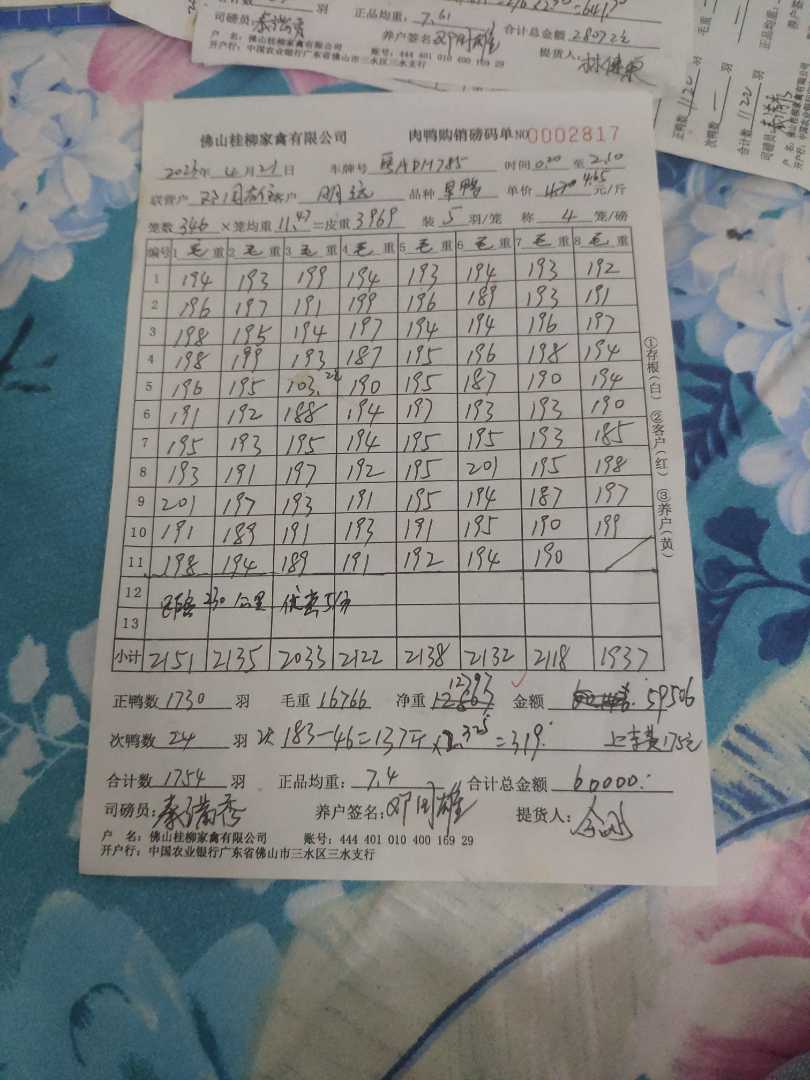 合计数 羽 正品均重: 7.61 合计总金额 28072元
司磅员: 养户签名 邓国雄 提货人:
户 名: 佛山桂柳家禽有限公司 账号: 444 401 010 400 169 29
开户行: 中国农业银行广东省佛山市三水区三水支行
正鸭数 1122 羽
次鸭数 一 羽
合计数 1122 羽
毛重
正品均重:
司磅员:
户 名: 佛山桂柳家禽有限公司
开户行: 中国农业银行
佛山桂柳家禽有限公司 肉鸭购销磅码单 NO 0002817
年 4 月 21 日 车牌号 时间 0.20 至 2.10
联营户 客户 明远 品种 单价 4.70 4.65 元/斤
笼数 346 ×笼均重 11.47 =皮重 3969 装 5 羽/笼 称 4 笼/磅
编号 1 毛 重 2 毛 重 3 毛 重 4 毛 重 5 毛 重 6 毛 重 7 毛 重 8 毛 重
1 194 193 199 194 193 194 193 192
2 196 197 191 199 196 189 193 191
3 198 195 194 197 194 194 196 197
4 198 199 193 187 195 196 198 194
5 196 195 103.2只 190 195 187 190 194
6 191 192 188 194 197 193 193 190
7 195 193 195 194 195 195 193 185
8 193 191 197 192 195 201 195 198
9 201 197 193 191 195 194 187 197
10 191 189 191 193 191 195 190 199
11 198 194 189 191 192 194 190
12 230 公里 优惠5分
13
小计 2151 2135 2033 2122 2138 2132 2118 1937
①存根(白) ②客户(红) ③养户(黄)
正鸭数 1730 羽 毛重 16766 净重 12797 金额 59506
次鸭数 24 羽 次 183-46=137斤×2.325=319. 上车费175元
合计数 1754 羽 正品均重: 7.4 合计总金额 60000.
司磅员: 秦瑞秀 养户签名: 邓国雄 提货人:
户 名: 佛山桂柳家禽有限公司 账号: 444 401 010 400 169 29
开户行: 中国农业银行广东省佛山市三水区三水支行